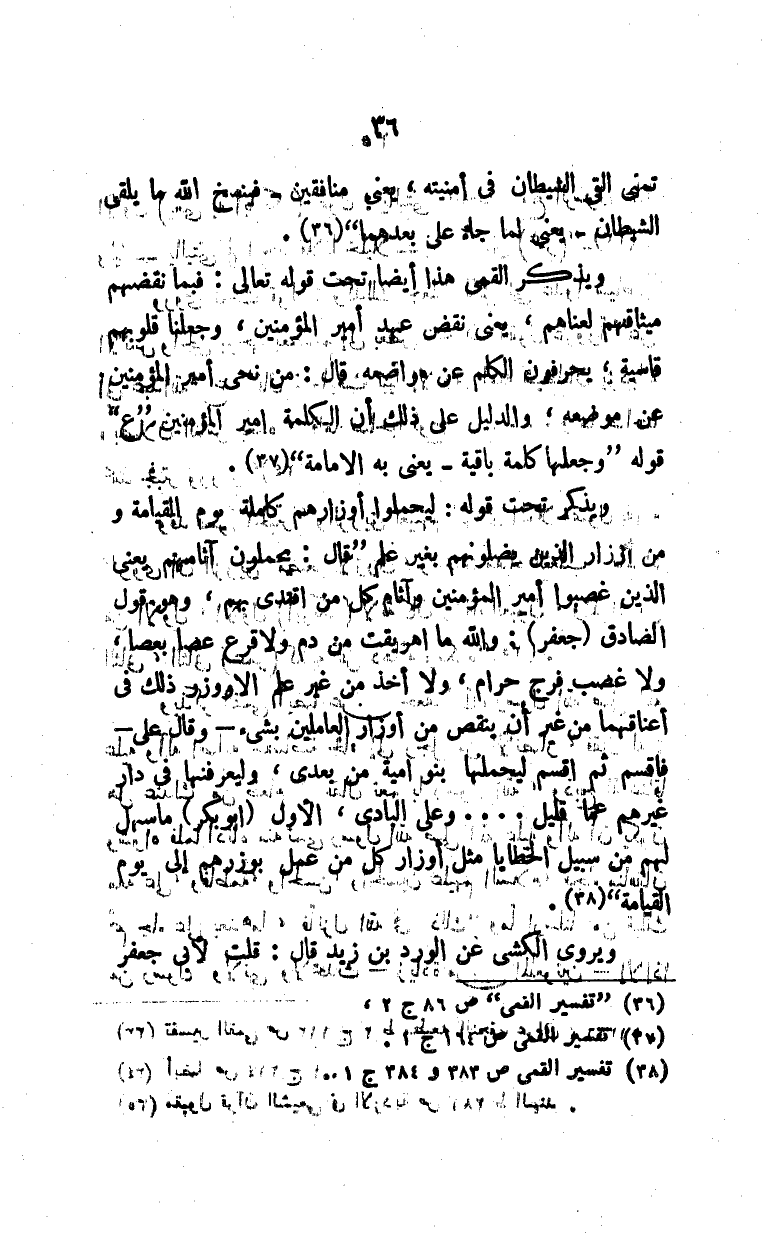 ٣٦
تمنى القى الشيطان فى أمنيته ، يعني منافقين - فينسخ الله ما يلقى
الشيطان - يعني لما جاء على بعدهما“(٣٦) .
ويذكر القمى هذا أيضا تحت قوله تعالى : فبما نقضهم
ميثاقهم لعناهم ، يعنى نقض عهد أمير المؤمنين ، وجعلنا قلوبهم
قاسية ، يحرفون الكلم عن مواضعه قال : من نحى أمير المؤمنين
عن موضعه ، والدليل على ذلك أن الكلمة امير المؤمنين ”ع“
قوله ”وجعلها كلمة باقية - يعنى به الامامة“(٣٧) .
ويذكر تحت قوله : ليحملوا أوزارهم كاملة يوم القيامة و
من اوزار الذين يضلونهم بغير علم ”قال : يحملون آثامهم يعنى
الذين غصبوا أمير المؤمنين وآثام كل من اقتدى بهم ، وهو قول
الصادق (جعفر) : والله ما اهريقت من دم ولا قرع عصا بعصا ،
ولا غصب فرج حرام ، ولا أخذ من غير علم الا ووزر ذلك فى
أعناقهما من غير أن ينقص من أوزار العاملين بشىء – وقال على –
فاقسم ثم اقسم ليحملنها بنو امية من بعدى ، وليعرفنها في دار
غيرهم عما قليل . . . . وعلى البادى ، الأول (ابوبكر) ما سهل
لهم من سبيل الخطايا مثل أوزار كل من عمل بوزرهم إلى يوم
القيامة“(٣٨) .
ويروى الكشى عن الورد بن زيد قال : قلت لأبي جعفر
(٣٦) ”تفسير القمى“ ص ٨٦ ج ٢ ،
(٣٧) تفسير القمى ص ١٦٤ ج ١ .
(٣٨) تفسير القمى ص ٣٨٣ و ٣٨٤ ج ١